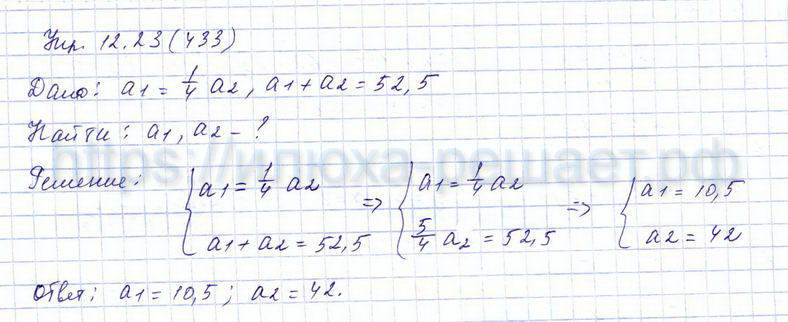 Упр. 12.23 (433)
Дано: a1 = 1/4 a2, a1 + a2 = 52,5
Найти: a1, a2 - ?
https://илюха-решает.рф
Решение: { a1 = 1/4 a2 => { a1 = 1/4 a2 => { a1 = 10,5
a1 + a2 = 52,5 5/4 a2 = 52,5 a2 = 42
Ответ: a1 = 10,5; a2 = 42.